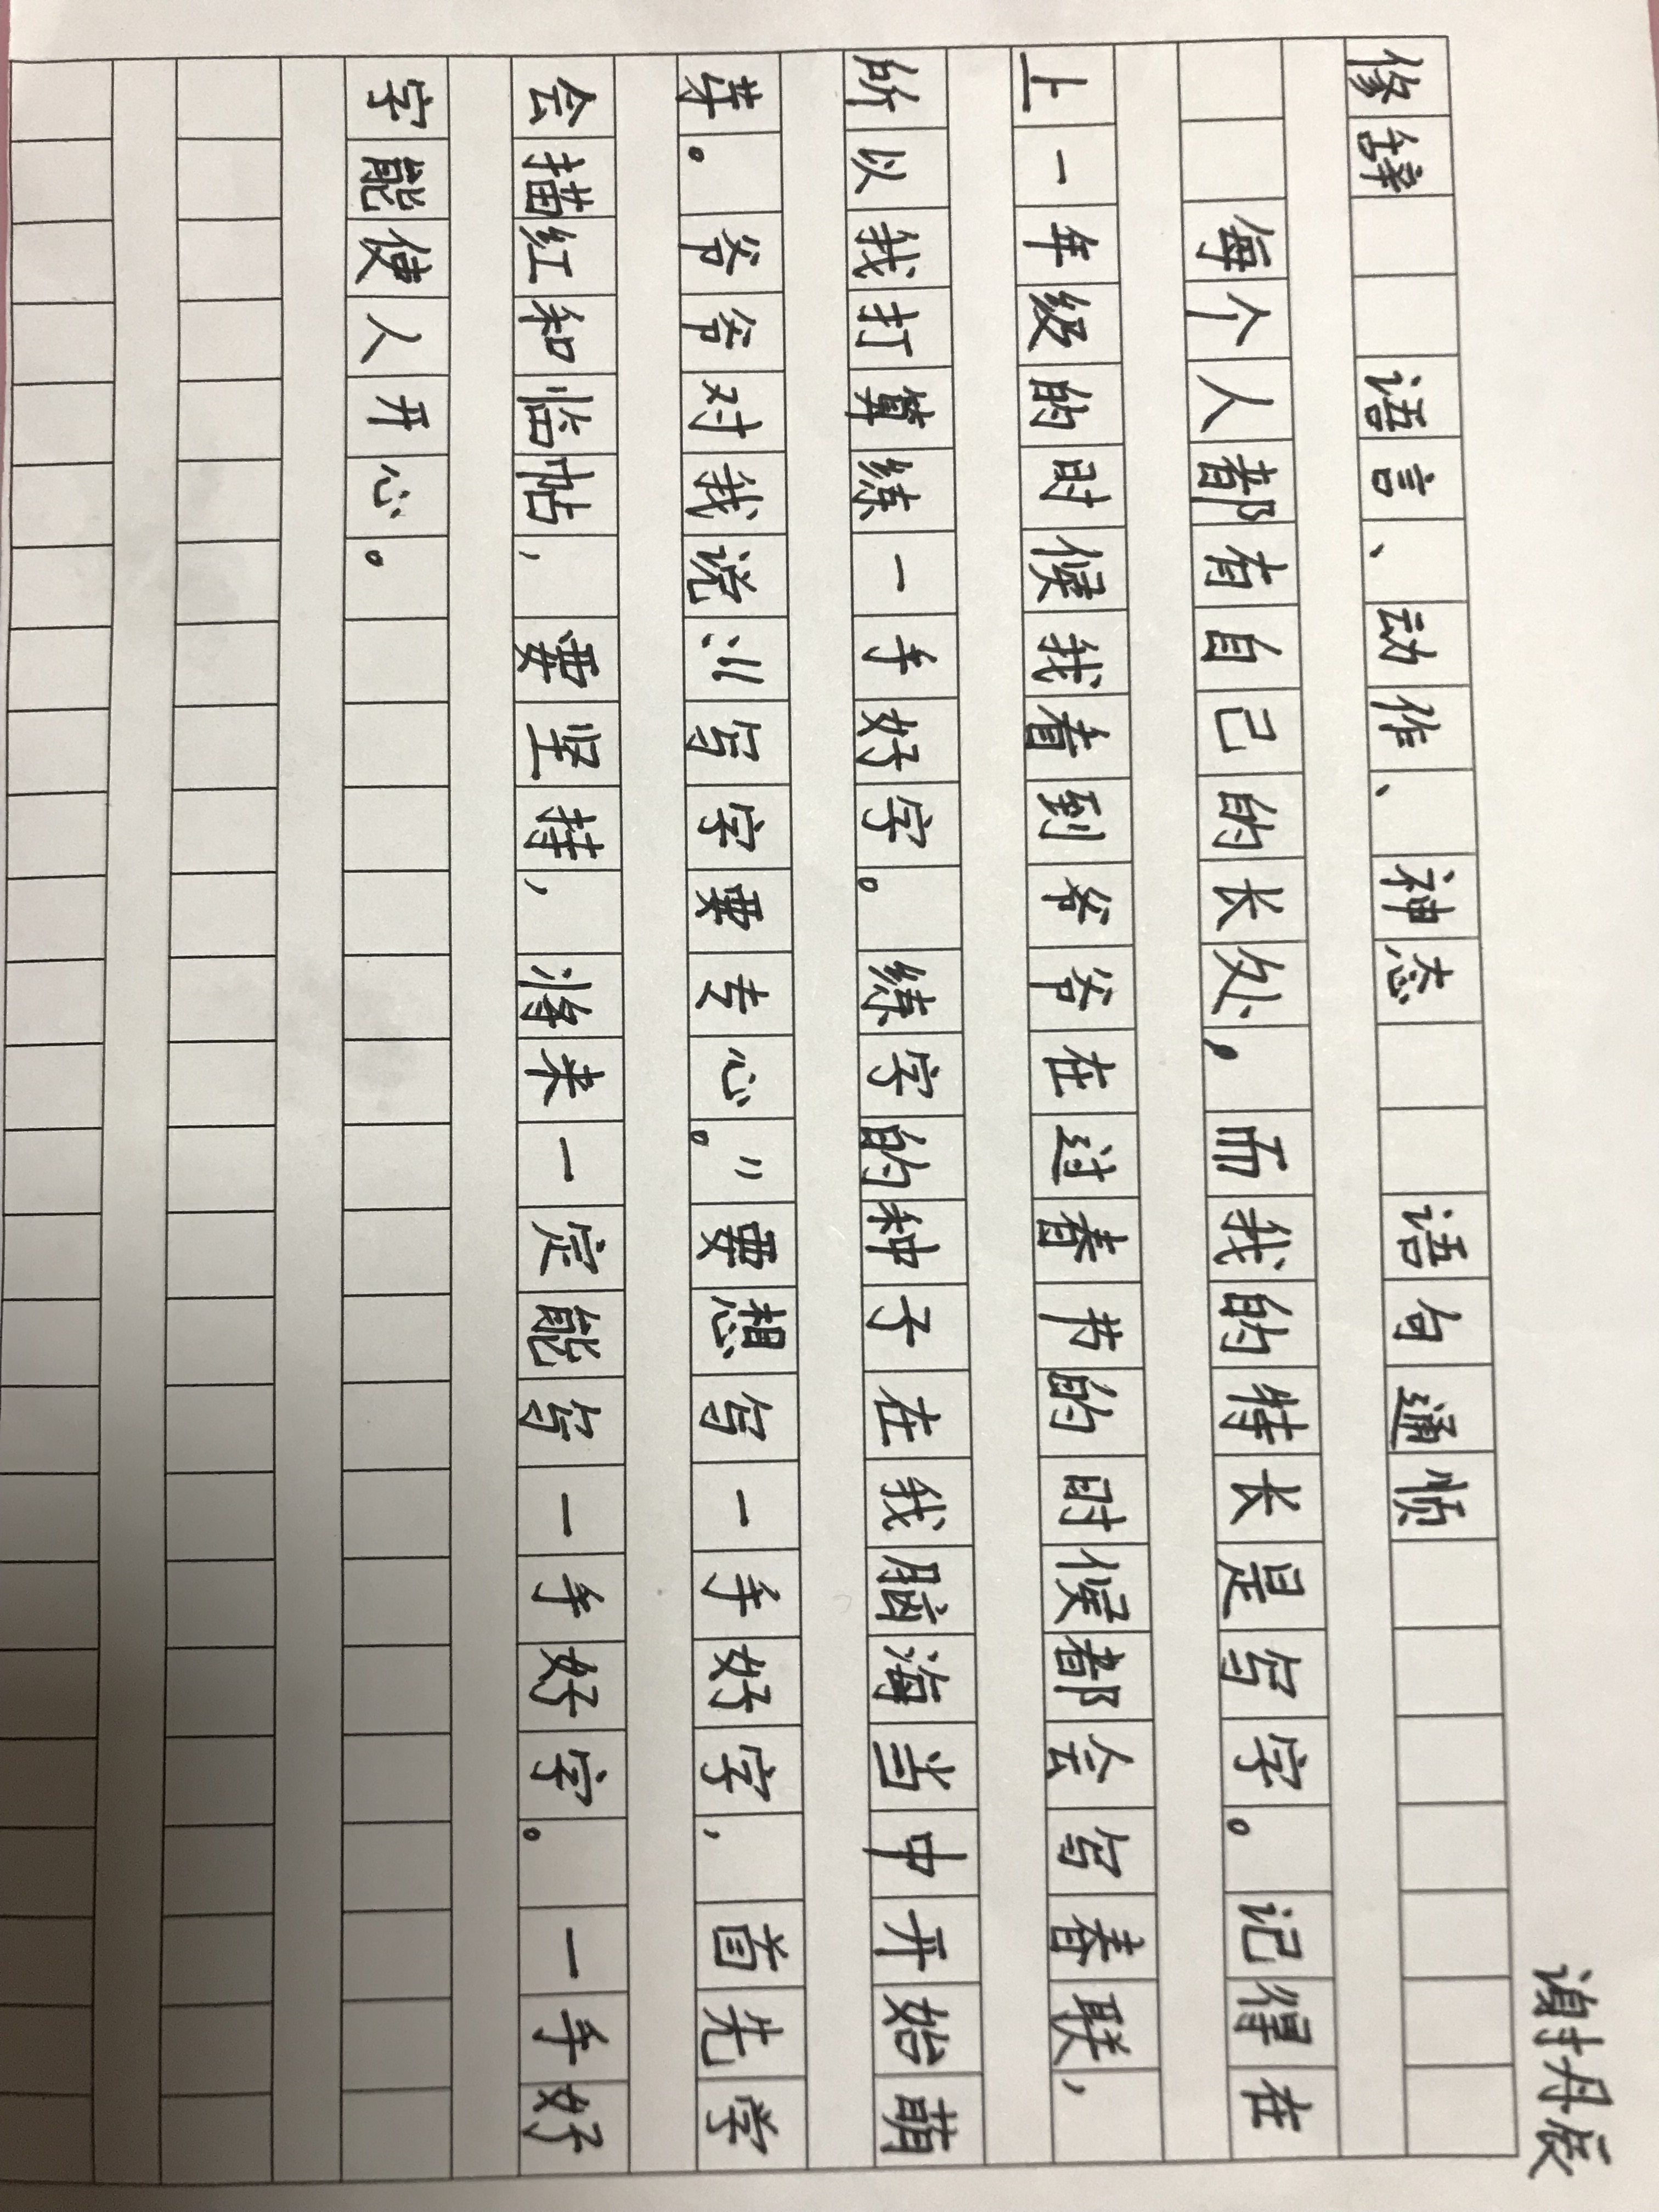 谢丹辰
修辞 语言、动作、神态 语句通顺
每个人都有自己的长处，而我的特长是写字。记得在
上一年级的时候我看到爷爷在过春节的时候都会写春联，
所以我打算练一手好字。练字的种子在我脑海当中开始萌
芽。爷爷对我说：“写字要专心。”要想写一手好字，首先学
会描红和临帖，要坚持，将来一定能写一手好字。一手好
字能使人开心。